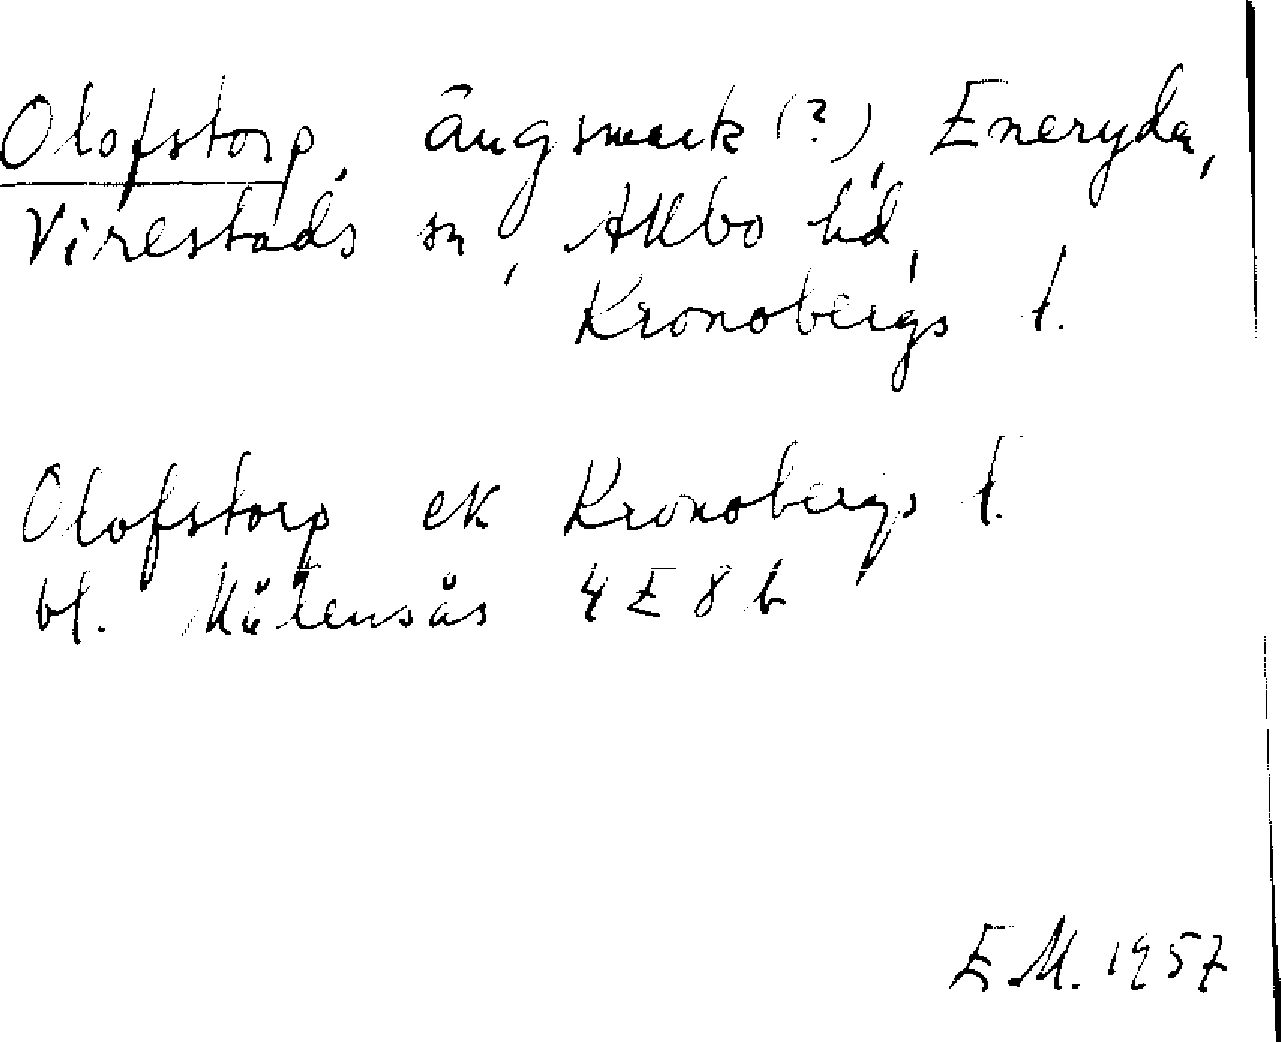 Olofstorp, ängsmark (?), Eneryda,
Virestads sn, Allbo hd,
Kronobergs l.
Olofstorp ek Kronobergs l.
bl. 4 E 8 b
E.M. 1957